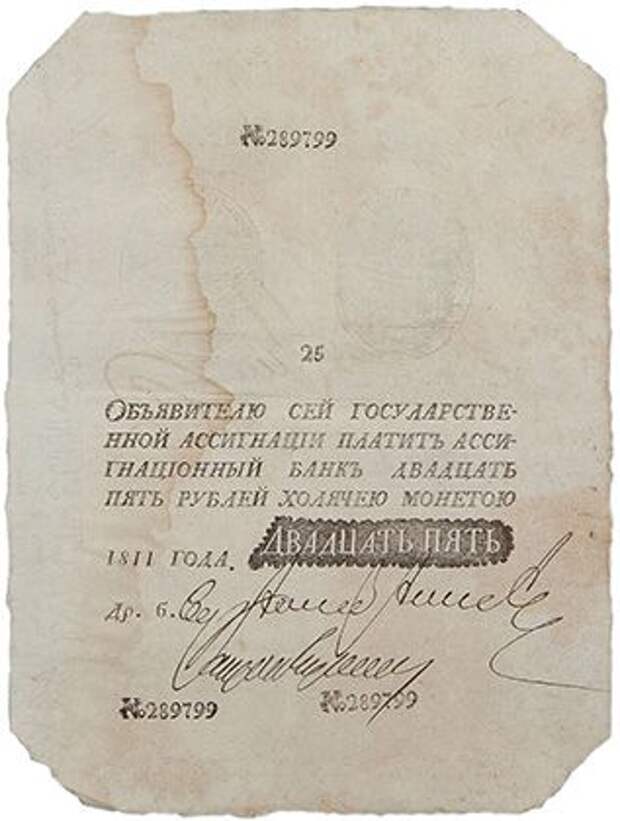 №289799
25
ОБЪЯВИТЕЛЮ СЕЙ ГОСУЛАРСТВЕ-
ННОЙ АССИГНАЦІИ ПЛАТИТЪ АССИ-
ГНАЦІОННЫЙ БАНКЪ ДВАДЦАТЬ
ПЯТЬ РУБЛЕЙ ХОЛЯЧЕЮ МОНЕТОЮ
1811 ГОДА. ДВАДЦАТЬ ПЯТЬ
Др. б.
№289799 №289799